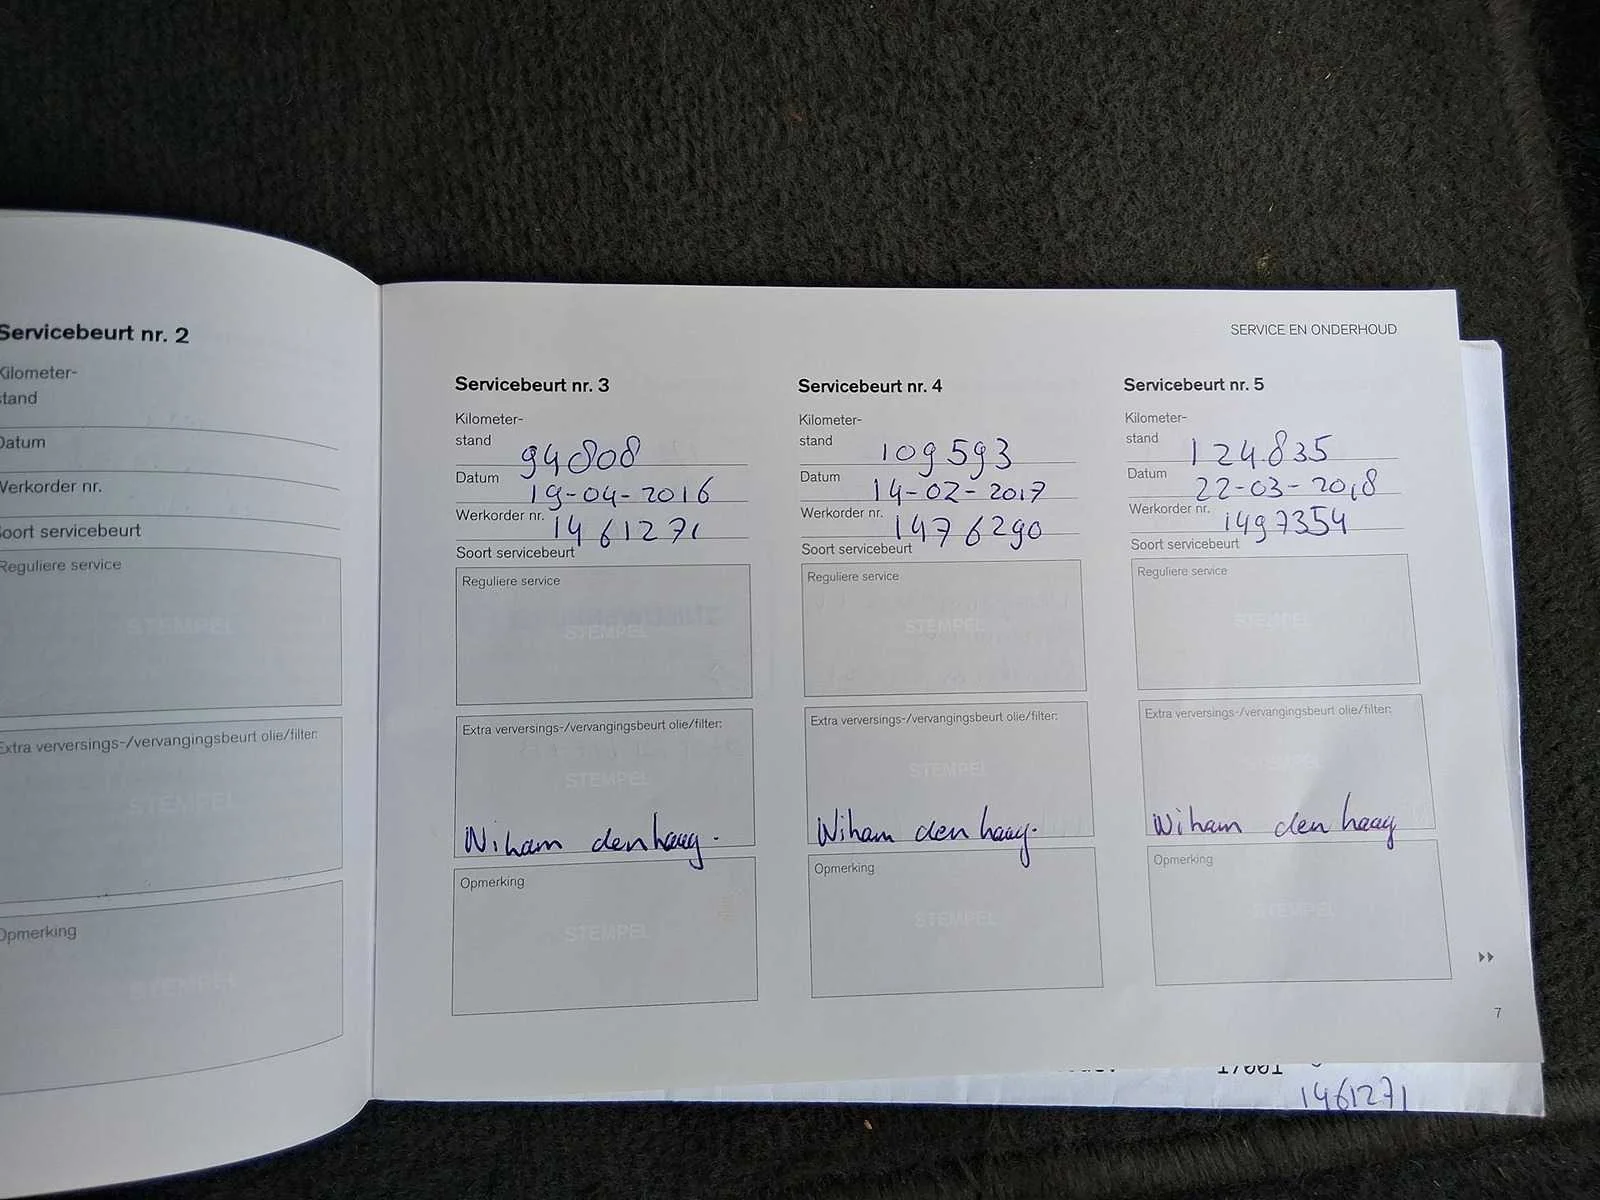 Servicebeurt nr. 2
Kilometer-
stand
Datum
Werkorder nr.
Soort servicebeurt
Reguliere service
STEMPEL
Extra verversings-/vervangingsbeurt olie/filter:
STEMPEL
Opmerking
STEMPEL
SERVICE EN ONDERHOUD
Servicebeurt nr. 3
Kilometer-
stand 94808
Datum 19-04-2016
Werkorder nr. 1461271
Soort servicebeurt
Reguliere service
STEMPEL
Extra verversings-/vervangingsbeurt olie/filter:
STEMPEL
Wiham den haag.
Opmerking
STEMPEL
Servicebeurt nr. 4
Kilometer-
stand 109593
Datum 14-02-2017
Werkorder nr. 1476290
Soort servicebeurt
Reguliere service
STEMPEL
Extra verversings-/vervangingsbeurt olie/filter:
STEMPEL
Wiham den haag.
Opmerking
STEMPEL
Servicebeurt nr. 5
Kilometer-
stand 124.835
Datum 22-03-2018
Werkorder nr. 1497354
Soort servicebeurt
Reguliere service
STEMPEL
Extra verversings-/vervangingsbeurt olie/filter:
STEMPEL
Wiham den haag
Opmerking
STEMPEL
7
1461271